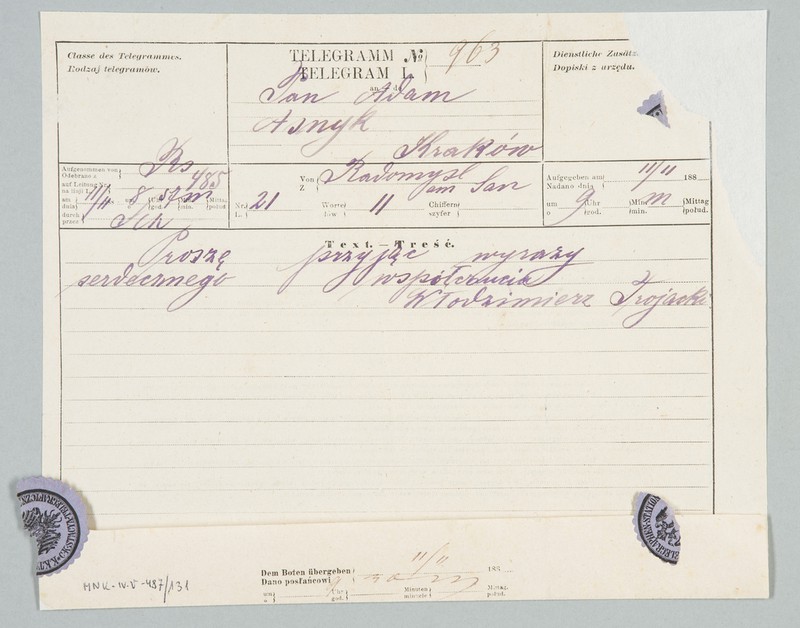 Classe des Telegrammes.
Rodzaj telegramów.
TELEGRAMM №
TELEGRAM L.
963
an — do
Pan Adam
Asnyk
Kraków
Dienstliche Zusätz
Dopiski z urzędu.
Aufgenommen von
Odebrano z
Rs
485
auf Leitung Nr.
na linji L.
am 11/11 um 8 Uhr 57 Min. m Mittag
dnia o god. min. połud
durch
przez
Sch
Von
Z
Radomyśl
am San
Nr.
L.
21
Worte
słów
11
Chiffern
szyfer
Aufgegeben am
Nadano dnia
11/11 188
um 9 Uhr Min. m Mittag
o god. min. połud.
Text. — Treść.
Proszę przyjąć wyrazy
serdecznego współczucia
Włodzimierz Trojacki
Dem Boten übergeben
Dano posłańcowi
11/11 188
um Uhr Minuten Mittag.
o god. minut połud.
MNK-IV-V-487/131